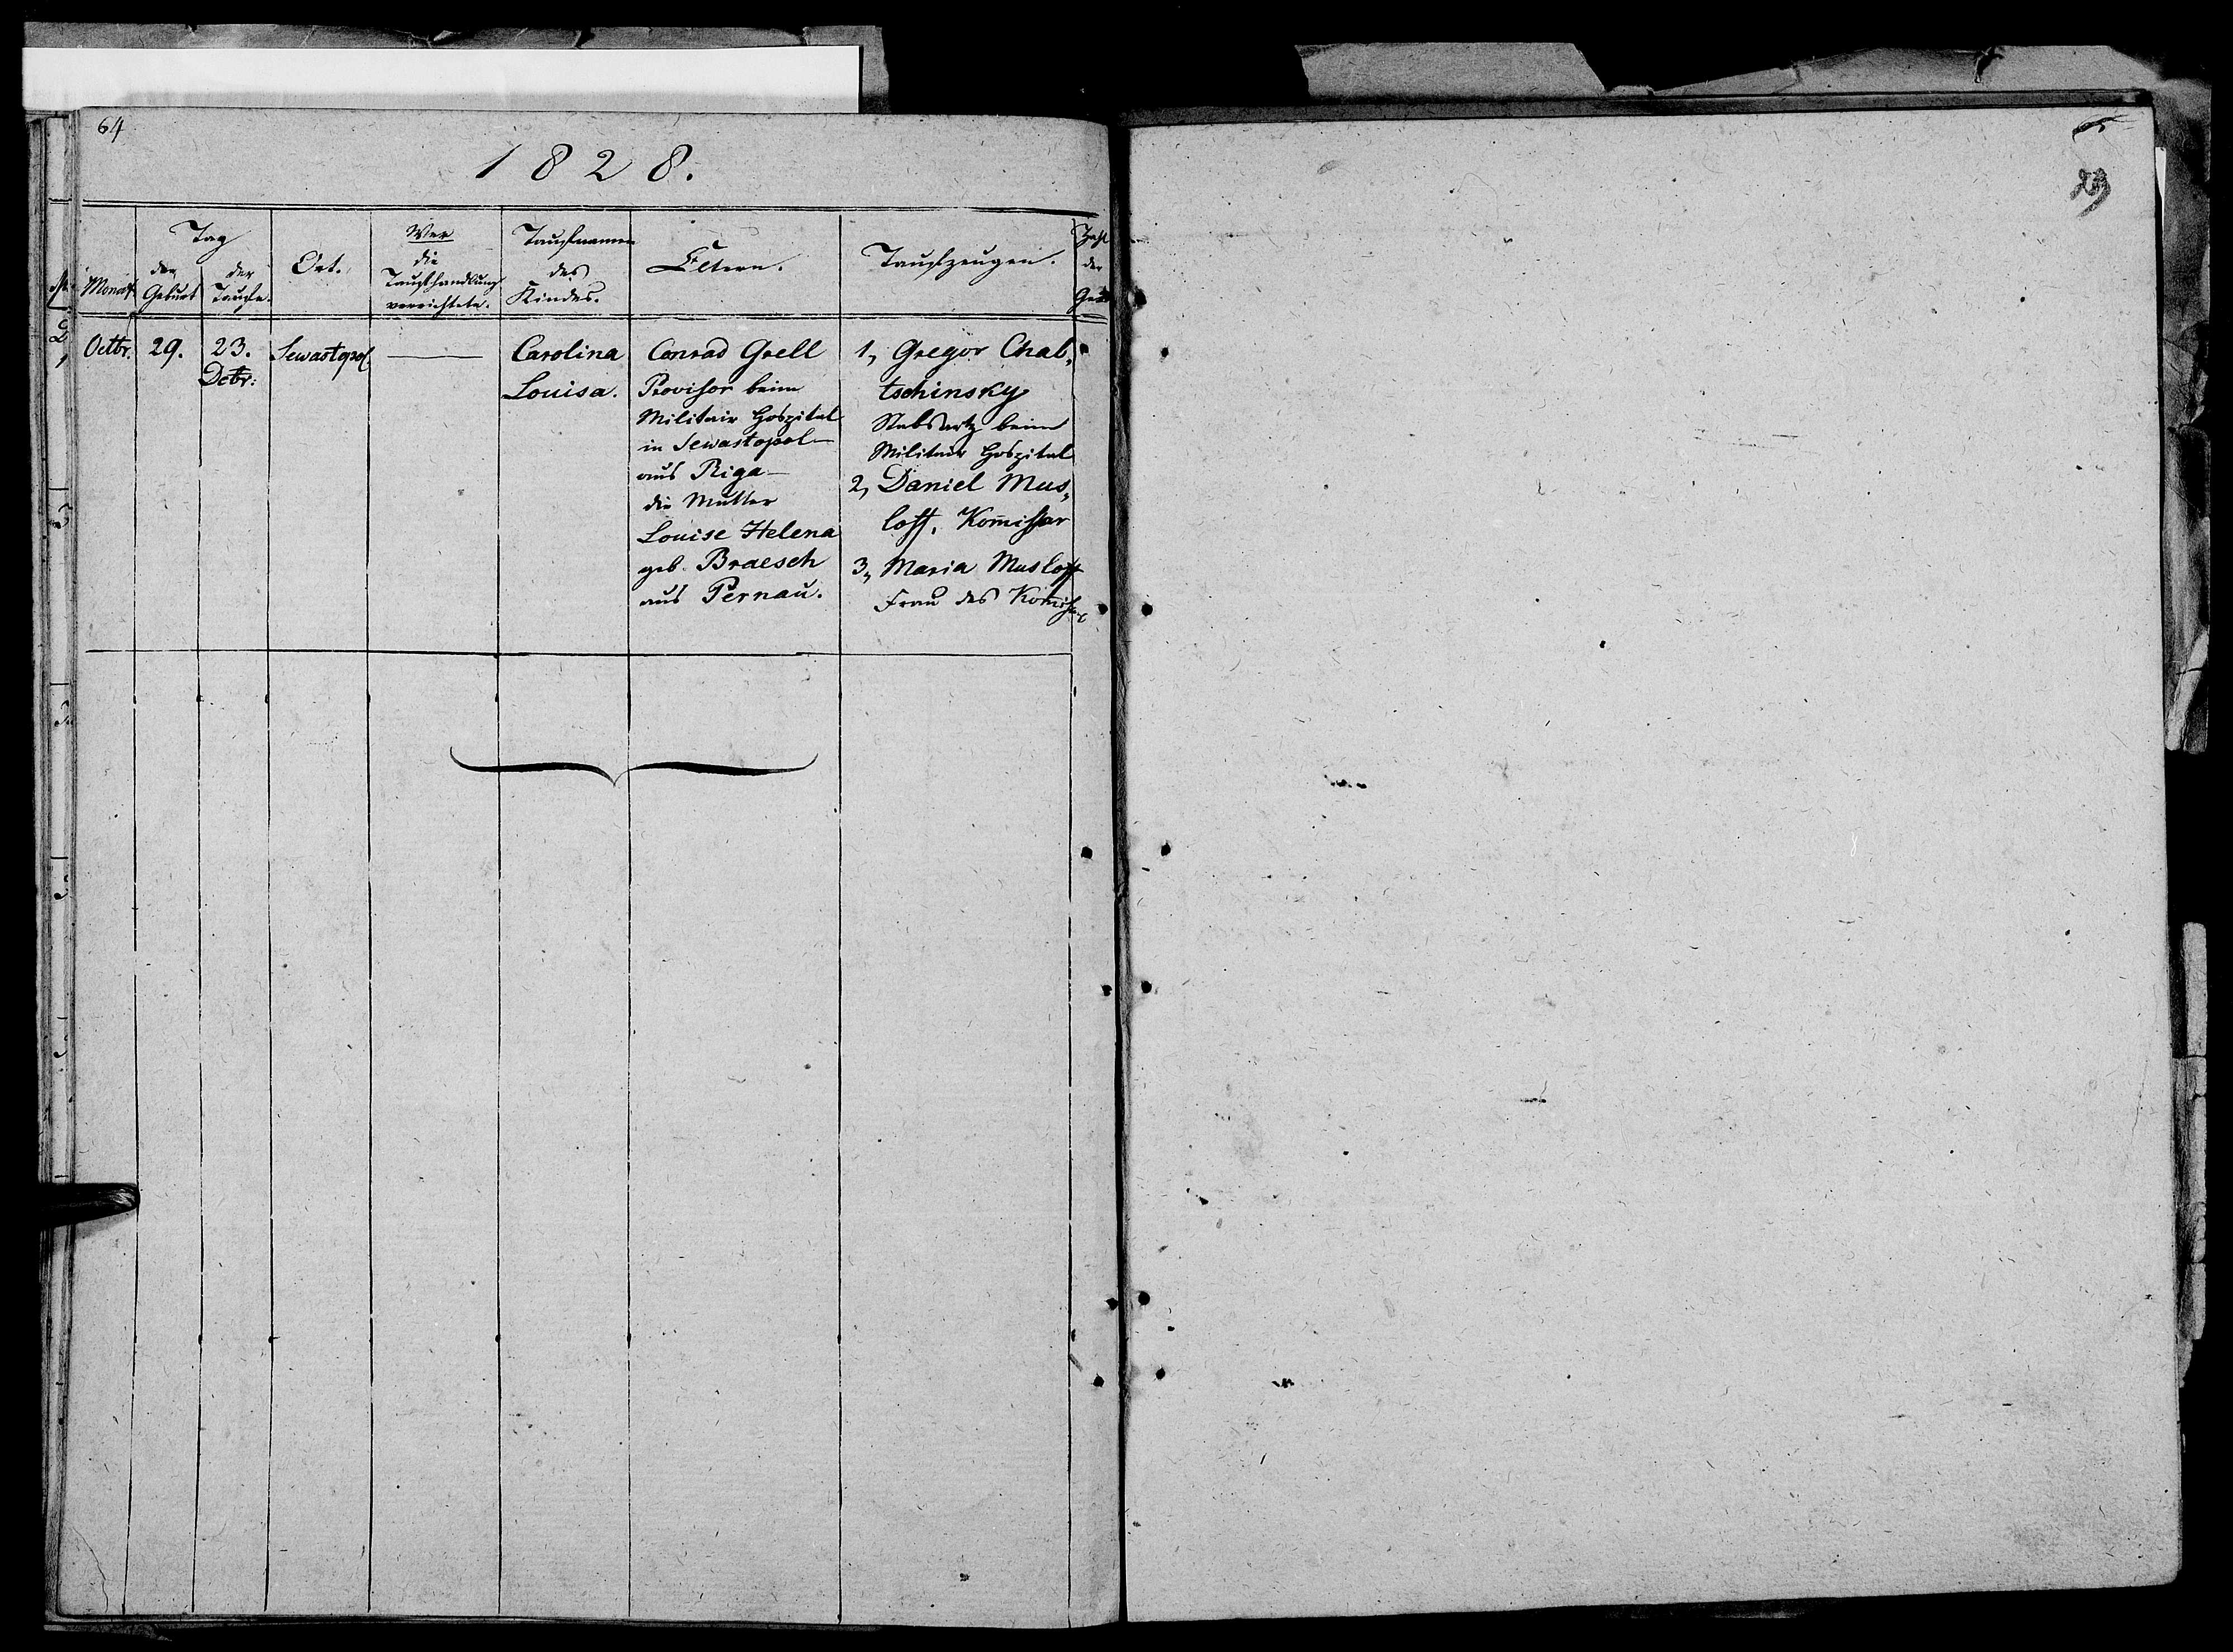 64
1828.
Monat
Tag
der Geburt
der Taufe.
Ort.
Wer
die
Taufhandlung
verrichtete.
Taufnamen
des
Kindes.
Eltern.
Taufzeugen.
Zahl
der
Octbr. 29. 23. Sewastopol
Dcbr:
Carolina
Louisa.
Conrad Grell
Provisor beim
Militair Hospital
in Sewastopol
aus Riga
die Mutter
Louise Helena
geb. Braesch
aus Pernau.
1, Gregor Chal,
tschinsky
Stabsartz beim
Militair Hospital
2, Daniel Mus,
loff, Kom̄issar
3, Maria Musloff
Frau des